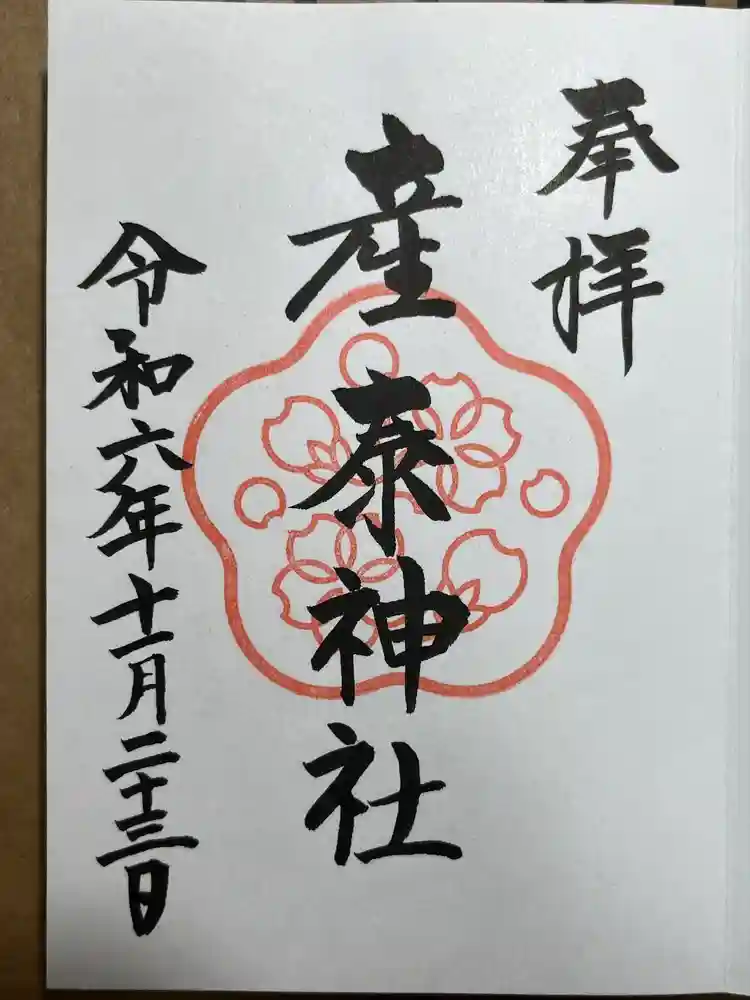 奉拝
産泰神社
令和六年十一月二十三日